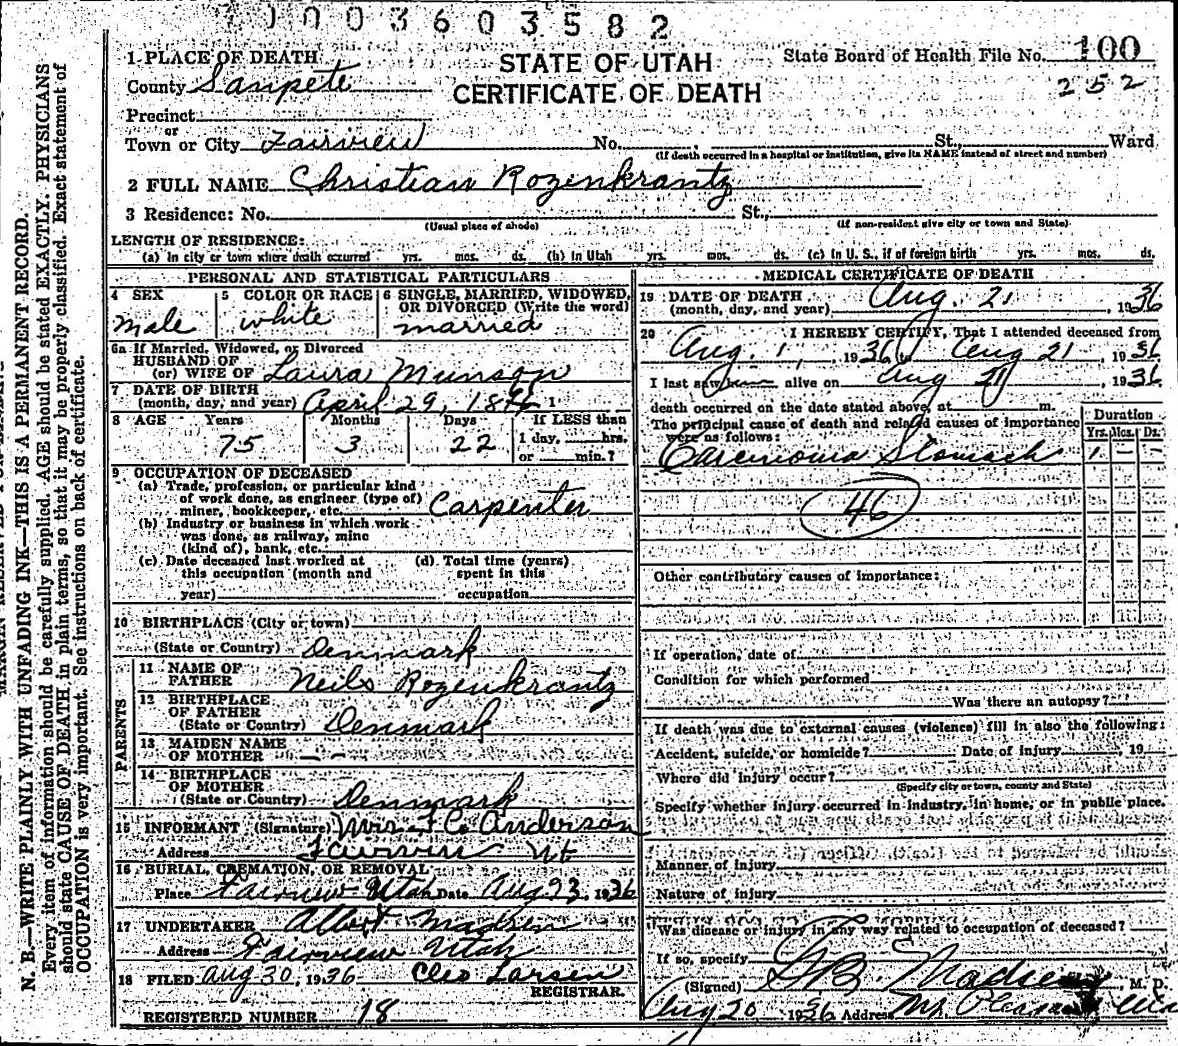 1003603582
STATE OF UTAH
CERTIFICATE OF DEATH
State Board of Health File No. 100
252
1 PLACE OF DEATH
County Sanpete
Precinct
or
Town or City Fairview No. St., Ward
(If death occurred in a hospital or institution, give its NAME instead of street and number)
2 FULL NAME Christian Rozenkrantz
3 Residence: No. St.,
(Usual place of abode) (If non-resident give city or town and State)
LENGTH OF RESIDENCE:
(a) In city or town where death occurred yrs. mos. ds. (b) In Utah yrs. mos. ds. (c) In U. S., if of foreign birth yrs. mos. ds.
PERSONAL AND STATISTICAL PARTICULARS
4 SEX
male
5 COLOR OR RACE
white
6 SINGLE, MARRIED, WIDOWED,
OR DIVORCED (Write the word)
married
6a If Married, Widowed, or Divorced
HUSBAND OF
(or) WIFE OF Laura Munson
7 DATE OF BIRTH
(month, day, and year) April 29, 1
8 AGE Years Months Days If LESS than
75 3 22 1 day, hrs.
or min.?
9 OCCUPATION OF DECEASED
(a) Trade, profession, or particular kind
of work done, as engineer (type of)
miner, bookkeeper, etc. Carpenter
(b) Industry or business in which work
was done, as railway, mine
(kind of), bank, etc.
(c) Date deceased last worked at
this occupation (month and
year)
(d) Total time (years)
spent in this
occupation
10 BIRTHPLACE (City or town)
(State or Country) Denmark
PARENTS
11 NAME OF
FATHER Neils Rozenkrantz
12 BIRTHPLACE
OF FATHER
(State or Country) Denmark
13 MAIDEN NAME
OF MOTHER — — —
14 BIRTHPLACE
OF MOTHER
(State or Country) Denmark
15 INFORMANT (Signature) Mrs. Anderson
Address Fairview Ut
16 BURIAL, CREMATION, OR REMOVAL
Place Fairview Utah Date Aug 23, 1936
17 UNDERTAKER Albert Madsen
Address Fairview Utah
18 FILED Aug 30, 1936 Cleo Larsen
REGISTRAR.
REGISTERED NUMBER 18
MEDICAL CERTIFICATE OF DEATH
19 DATE OF DEATH
(month, day, and year) Aug. 21, 1936
20 I HEREBY CERTIFY, That I attended deceased from
Aug. 1, 1936 to Aug 21, 1936
I last saw alive on Aug 21, 1936
death occurred on the date stated above, at m.
The principal cause of death and related causes of importance
were as follows:
Duration
Yrs. Mos. Ds.
Carcinoma Stomach 1 — —
46
Other contributory causes of importance:
If operation, date of
Condition for which performed
Was there an autopsy?
If death was due to external causes (violence) fill in also the following:
Accident, suicide, or homicide? Date of injury , 19
Where did injury occur?
(Specify city or town, county and State)
Specify whether injury occurred in industry, in home, or in public place.
Manner of injury
Nature of injury
Was disease or injury in any way related to occupation of deceased?
If so, specify
(Signed) Madsen, M. D.
Aug 20 1936 Address Mt. Pleasant Utah
N. B.—WRITE PLAINLY WITH UNFADING INK—THIS IS A PERMANENT RECORD.
Every item of information should be carefully supplied. AGE should be stated EXACTLY. PHYSICIANS
should state CAUSE OF DEATH in plain terms, so that it may be properly classified. Exact statement of
OCCUPATION is very important. See instructions on back of certificate.